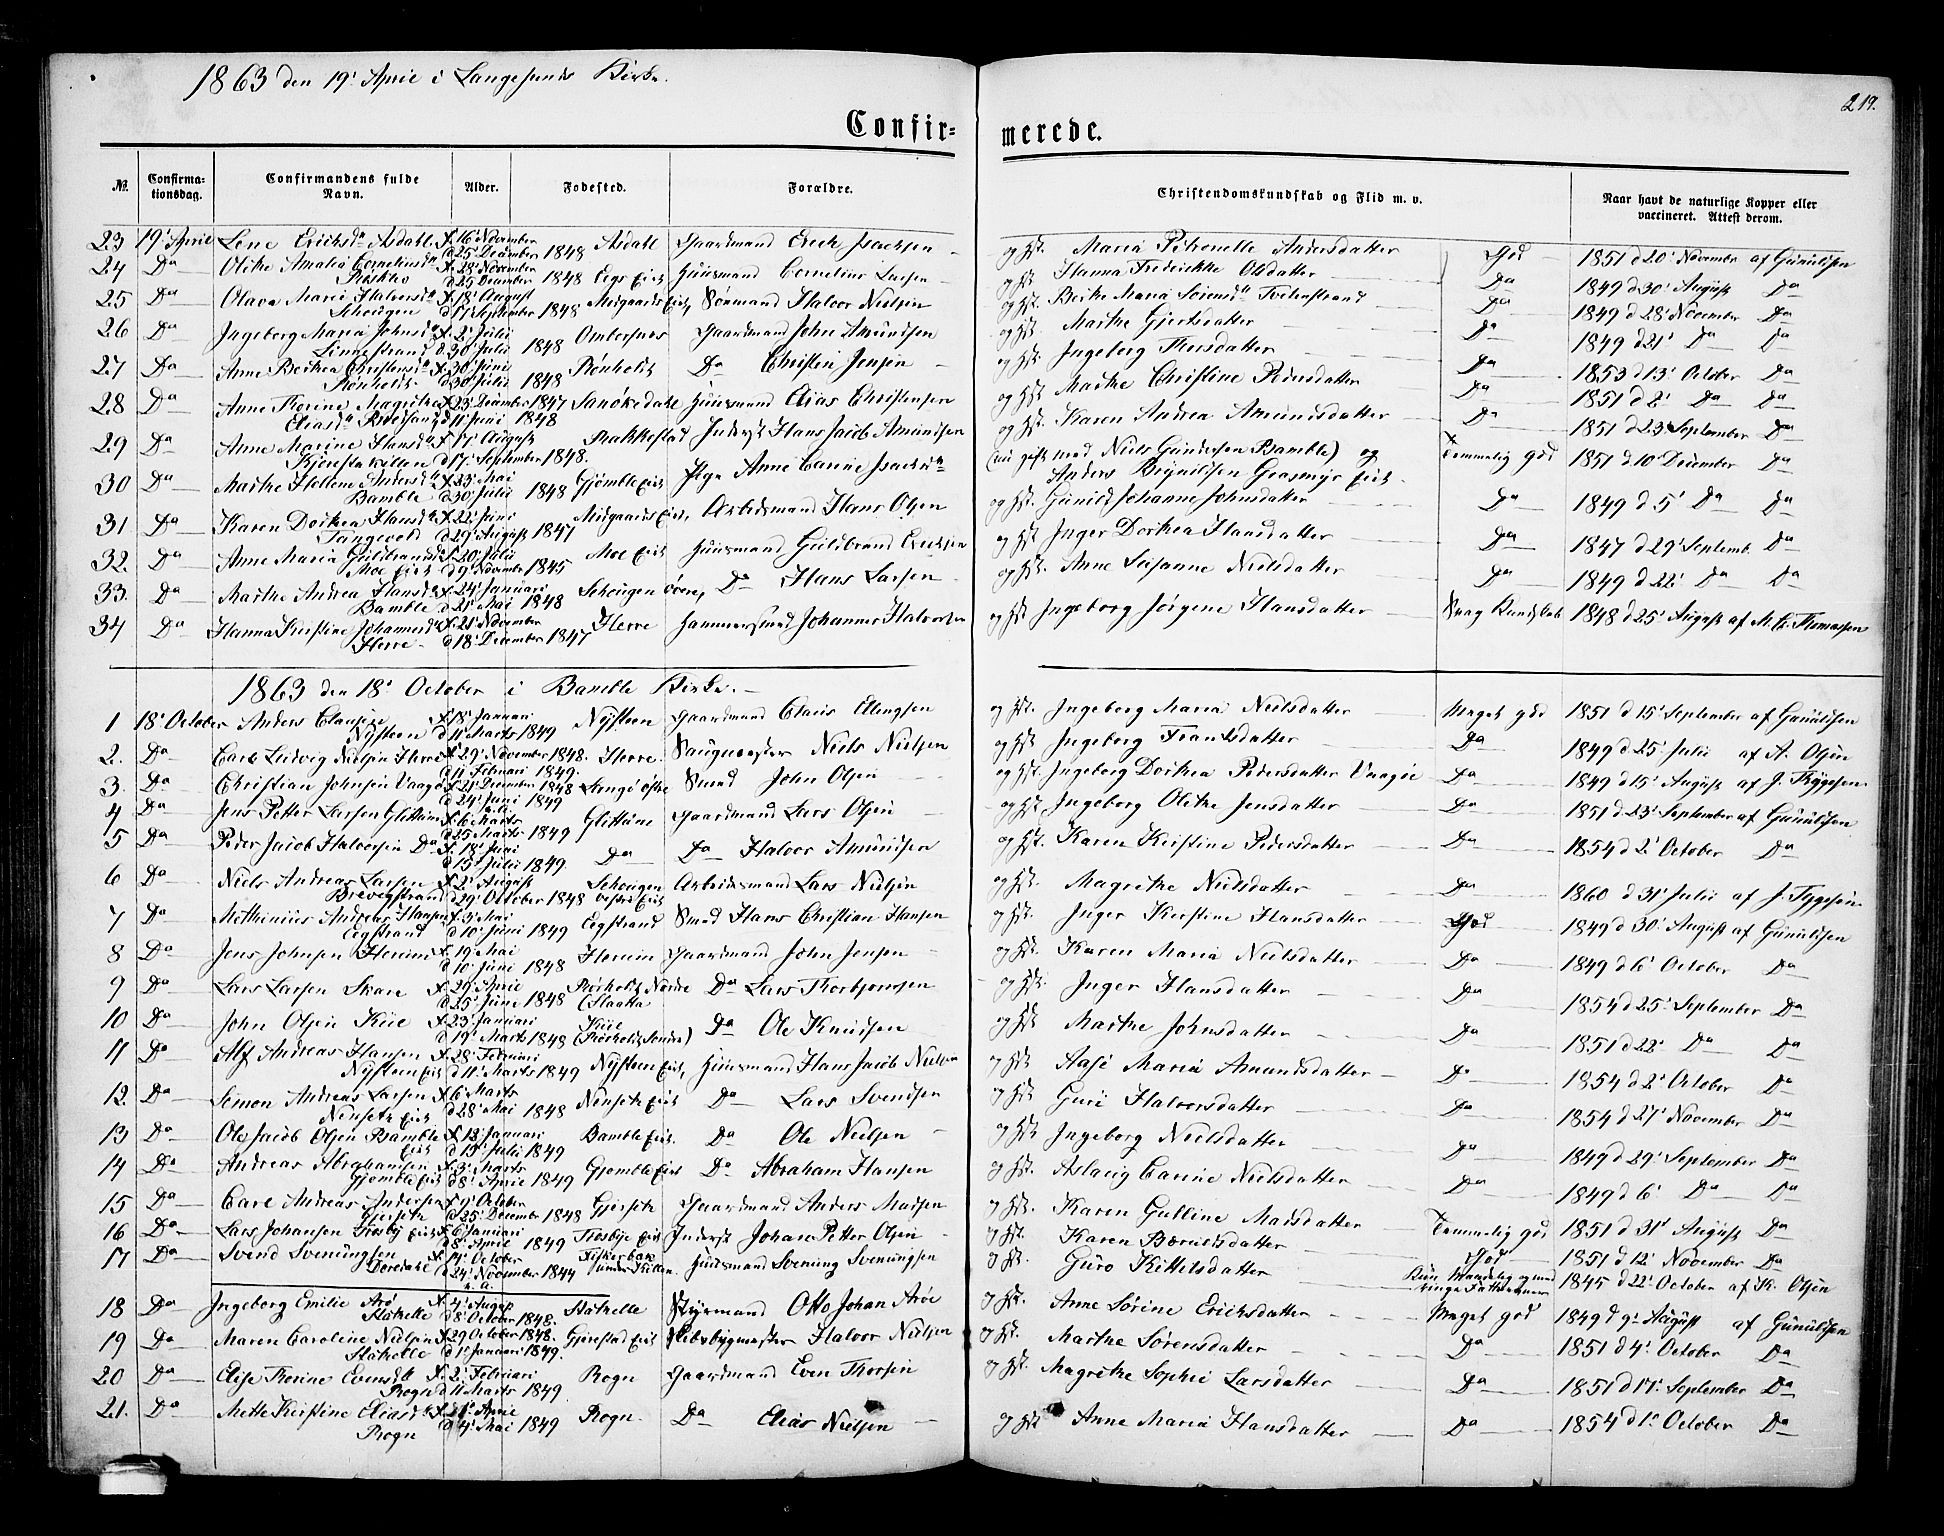 1863 den 19' April i Langesunds Kirke.
219.
Confir=
merede.
No.
Confirma-
tionsdag.
Confirmandens fulde
Navn.
Alder.
Fødested.
Forældre.
Christendomskundskab og Flid m. v.
Naar havt de naturlige Kopper eller
vaccineret. Attest derom.
23 19' April Lene Ericksdr Asdahl f. 16' November d 25' December 1848 Asdahl Gaardmand Erick Isachsen og Hst. Maria Petronelle Andersdatter God 1851 d 20' November af Gunulfsen
24 Da Olike Amalia Corneliusdr f. 28' November d 25' December 1848 Eegs Eiet Huusmand Cornelius Larsen og Hst. Hanna Frederikke Olsdatter Da 1849 d 30' August Da
25 Da Olava Maria Halvorsdr Schougen f. 18' August d 17' September 1848 Midgaards Eiet, Sømand Halvor Nielsen og Hst. Berthe Maria Sørensdr Tvedestrand Da 1849 d 28' November Da
26 Da Ingeborg Maria Johnsdr Linnestrand f. 2' Julii d 30' Julii 1848 Ombersnes Gaardmand John Amundsen og Hst. Marthe Gjertsdatter Da 1849 d 21' Da Da
27 Da Anne Berthea Christensdr Rønholdt f. 30' Juni d 30' Julii 1848 Rønholdt Da Christen Jensen og Hst. Ingeborg Thorsdatter Da 1853 d 13' October Da
28 Da Anne Thorine Magrethea Eliasdr f. 23' December 1847 d 11' Juni 1848 Sanøkedahl Huusmand Elias Christensen og Hst. Marthe Christine Pedersdatter Da 1851 d 2' Da Da
29 Da Anne Marine Hansdr f. 17' August d 17' September 1848. Stakkestad Inderst Hans Jacob Amundsen og Hst. Karen Andrea Amundsdatter Da 1851 d 23' September Da
30 Da Marthe Hellene Andersdr Bamble f. 23' Mai d 30' Julii 1848 Gjømble Eiet Pige Anne Carine Isachsdr (nu gift med Niels Gundersen Bamble) og Anders Brynildsen Grasmyr Eiet. Temmelig god 1851 d 10' December Da
31 Da Karen Dorthea Hansdr Tangevald f. 22' Juni d 29' August 1847 Midgaards Eiet, Arbeidsmand Hans Olsen og Hst. Gunild Johanne Johnsdatter Da 1849 d 5' Da Da
32. Da Anne Maria Gulbrandsdr Moe Eiet f. 20' Julii d 9' November 1845 Moe Eiet Huusmand Gulbrand Ericksen og Hst Inger Dorthea Hansdatter Da 1847 d 29' Septemb. Da
33. Da Marthe Andrea Hansdr Bamble f. 24' Januari d 21' Mai 1848 Schougen øvre, Da Hans Larsen og Hst. Anne Susanne Nielsdatter Da 1849 d 22' Da Da
34 Da Hanna Kirstine Johannesdr Herre f. 21' November d 18' December 1847 Herre Hammersmed Johannes Halvorsen og Hst Ingeborg Jørgene Hansdatter Svag Kundskab 1848 d 25' August af M. C. Thomassen
1863 den 18' October i Bamble Kirke.
1 18' October Anders Clausen Nysteen f. 18' Januari d 11' Marts 1849 Nysteen Gaardmand Claus Ellingsen og Hst. Ingeborg Maria Nielsdatter Meget god 1851 d 15' September af Gunulfsen
2. Da Carl Ludvig Nielsen Herre f. 29' November 1848. d 11 Februari 1849. Herre Saugmester Niels Nielsen og Hst. Ingeborg Frantsdatter Da 1849 d 25' Julii af A. Olsen
3. Da Christian Johnsen Vaagø f. 21' December 1848 d 24' Juni 1849 Langø østre Smed John Olsen og Hst. Ingeborg Dorthea Pedersdatter Vaagøe Da 1849 d 15' August af J. Thygesen
4 Da Jens Petter Larsen Glittum f. 6' Marts d 25' Marts 1849 Glittum Gaardmand Lars Olsen og Hst. Ingeborg Olithe Jensdatter Da 1851 d 23' September af Gunulfsen
5 Da Peder Jacob Halvorsen Da f. 18' Juni d 15' Julii 1849. Da Da Halvor Amundsen og Hst. Karen Kirstine Pedersdatter Da 1854 d 2' October Da
6 Da Niels Andreas Larsen Brevigstrand f. 2' August d 29' October 1848 Schougen vestre Eiet Arbeidsmand Lars Nielsen og Hst. Magrethe Nielsdatter Da 1860 d 31' Julii af J. Tygesen
7 Da Mathinius Andreas Hansen Eegstrand f. 3' Mai d 10' Juni 1849 Eegstrand Smed Hans Christian Hansen og Hst. Inger Kirstine Hansdatter God 1849 d 30' August af Gunulfsen
8 Da Jens Johnsen Hereim f. 19' Mai d 10' Juni 1848 Hereim Gaardmand John Jensen og Hst. Karen Maria Nielsdatter Da 1849 d 6' October Da
9 Da Lars Larsen Skare f. 29' April d 25' June 1848 Rørholt Nordre (Slaatta Da Lars Thorbjørnsen og Hst. Inger Hansdatter Da 1854 d 25' September Da
10 Da John Olsen Kiie f. 23' Januari d 19' Marts 1848 Kiie (Rørholt Søndre) Da Ole Knudsen og Hst Marthe Johnsdatter Da 1851 d 22' Da Da
11 Da Alf Andreas Hansen Nysteen Eiet f. 28' Februari d 11' Marts 1849 Nysteen Eiet, Huusmand Hans Jacob Nielsen og Hst Aase Maria Amundsdatter Da 1854 d 2' October Da
12. Da Simon Andreas Larsen Nenseth Eiet f. 6' Marts d 28' Mai 1848 Nenseth Eiet Da Lars Svendsen og Hst Guri Halvorsdatter Da 1854 d 27' November Da
13 Da Ole Jacob Olsen Bamble Eiet f. 13' Januari d 15' Julii 1849 Bamble Eiet. Da Ole Nielsen og Hst Ingeborg Nielsdatter Da 1849 d 29' September Da
14 Da Andreas Abrahamsen Gjømble Eiet f. 3' Marts d 8' April 1849 Gjømble Eiet Da Abraham Hansen og Hst. Aslaug Carine Nielsdatter Da 1849 d 6' Da Da
15 Da Carl Andreas Andersen Gjerseth f. 9' October d 25' December 1848 Gjerseth Gaardmand Anders Madsen og Hst. Karen Gulline Madsdatter Temmelig god 1851 d 31' August Da
16 Da Lars Johansen Trosby Eiet f. 6' Januari d 8' April 1849 Trosbye Eiet Inderst Johan Petter Olsen og Hst. Karen Børuldsdatter God 1851 d 12' November Da
17 Da Svend Svenungsen Dørdahl f. 14' October d 24' November 1844 Fiskerbæk under Killen. Huusmand Svenung Svenungsen og Hst. Guro Kittilsdatter Kun Maadelig og med ringe Fatteevner 1845 d 22' October af K. Olsen
18 Da Ingeborg Emilie Arø Stathelle f. 4' August d 8' October 1848. Stathelle Styrmand Otto Johan Arøe og Hst. Anne Sørine Ericksdatter Meget god 1849 d 9' August af Gunulfsen
19 Da Maren Caroline Nielsen Stathelle f. 29' October 1848. d 1' Januari 1849. Gjerestad Eiet Skibsbygmester Halvor Nielsen og Hst. Marthe Sørensdatter Da 1851 d 4' October Da
20 Da Elise Thorine Evensdr Rogn f. 2' Februari d 11' Marts 1849. Rogn Gaardmand Even Thorsen og Hst Magrethe Sophie Larsdatter Da 1851 d 17' September Da
21. Da Mette Kirstine Eliasdr Rogn f. 21' April d 4' Mai 1849 Rogn. Da Elias Nielsen og Hst Anne Maria Hansdatter Da 1854 d 1' October Da